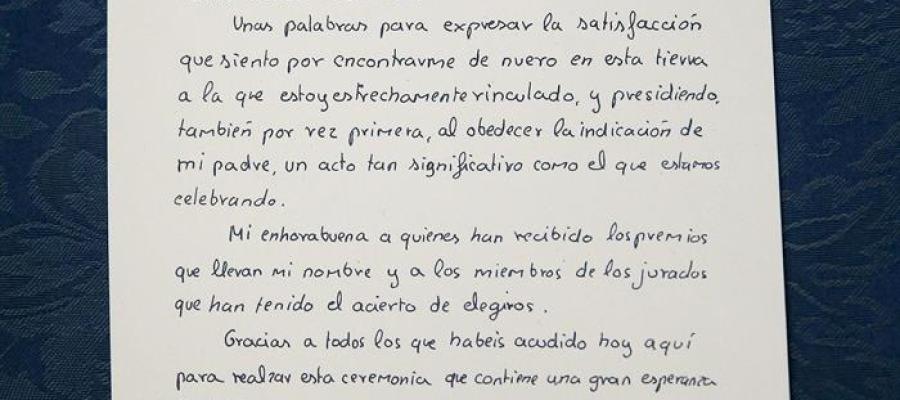 Unas palabras para expresar la satisfacción
que siento por encontrarme de nuevo en esta tierra
a la que estoy estrechamente vinculado, y presidiendo,
también por vez primera, al obedecer la indicación de
mi padre, un acto tan significativo como el que estamos
celebrando.
Mi enhorabuena a quienes han recibido los premios
que llevan mi nombre y a los miembros de los jurados
que han tenido el acierto de elegiros.
Gracias a todos los que habeis acudido hoy aquí
para realzar esta ceremonia que contiene una gran esperanza